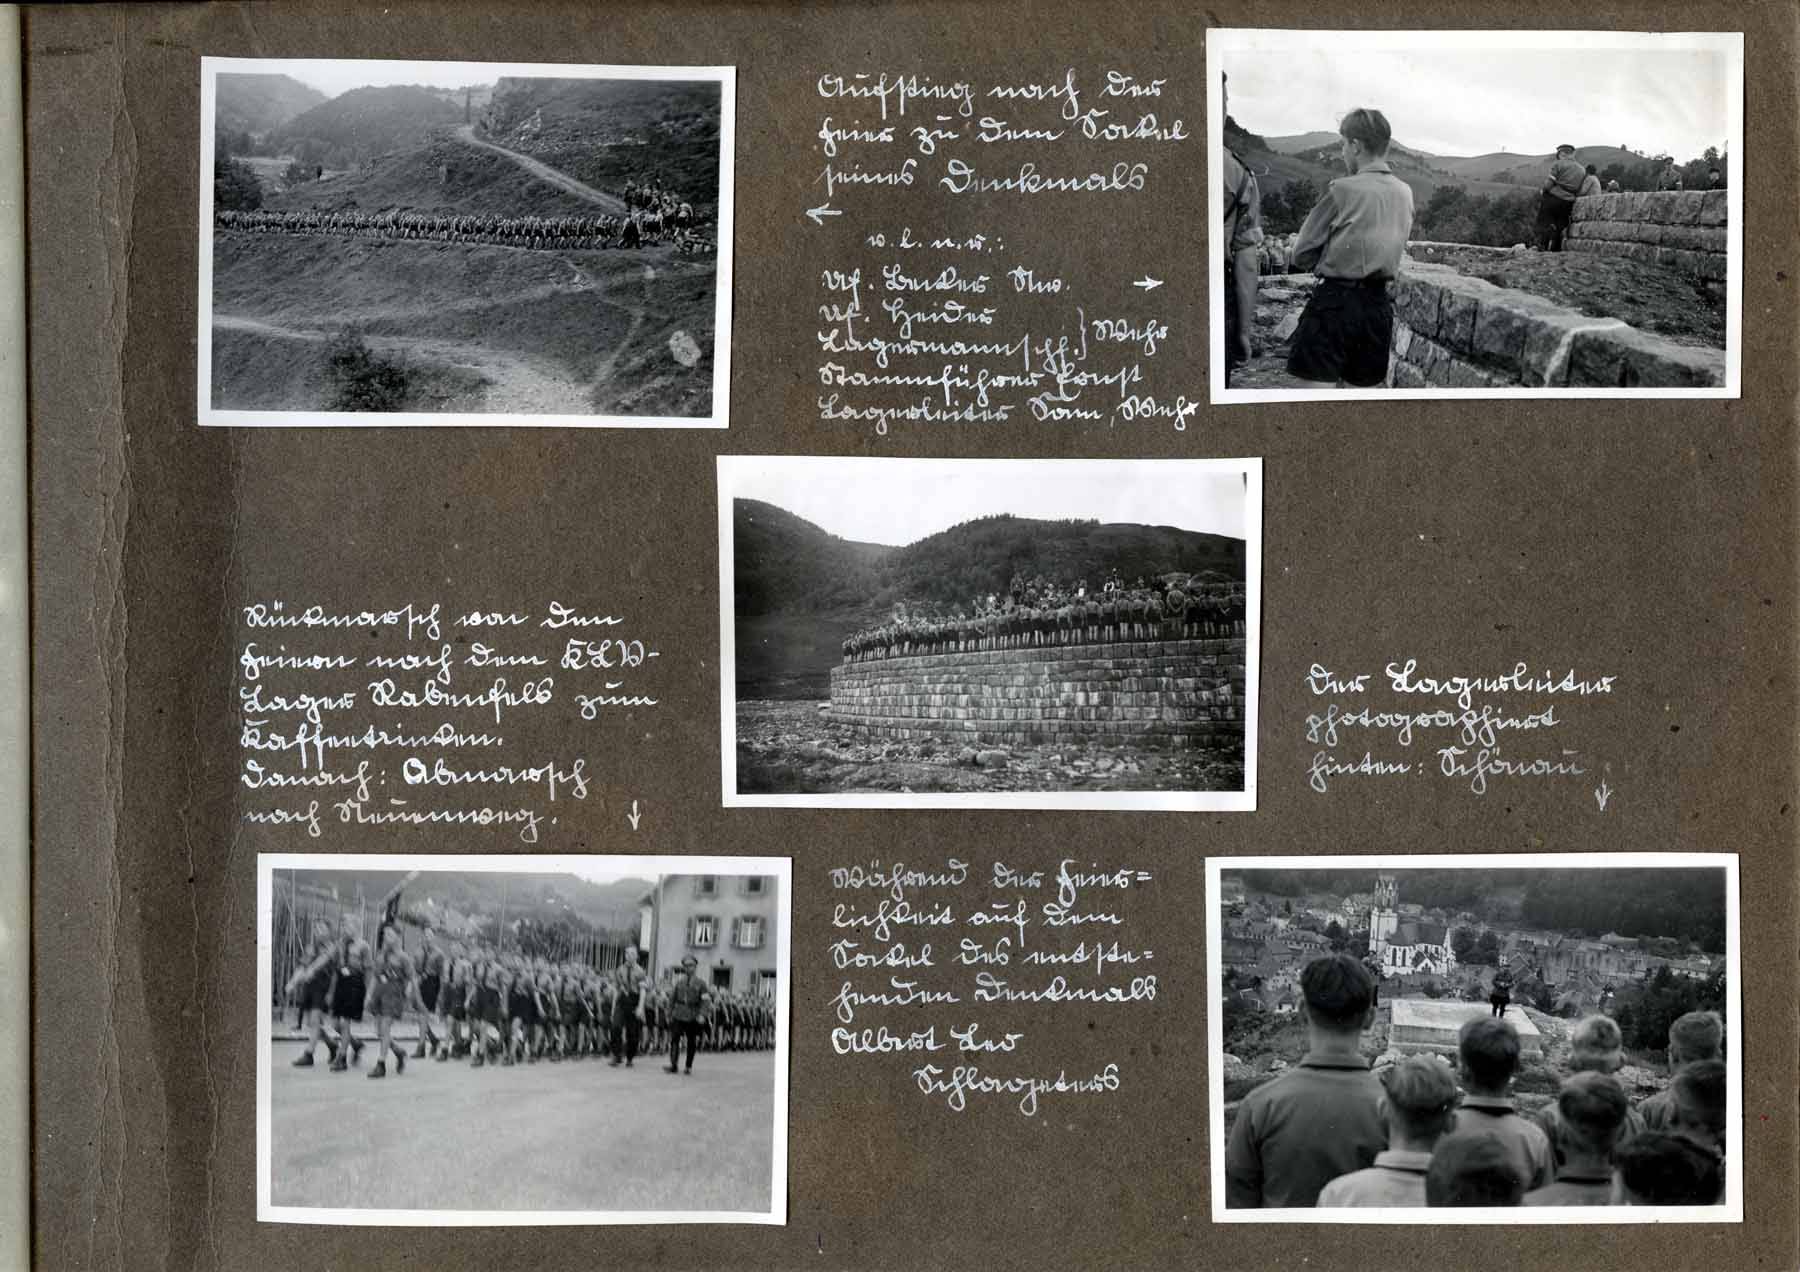 Aufstieg nach der
Feier zu dem Sockel
seines Denkmals
←
v. l. n. r.:
Uf. Becker Nw. →
Uf. Heider
Lagermannschf. } Wehr
Stammführer Ernst
Lagerleiter Sam, Wehr
Rückmarsch von den
Feiern nach dem KLV-
Lager Rabenfels zum
Kaffeetrinken.
Danach: Abmarsch
nach Neuenweg. ↓
Der Lagerleiter
photographiert
hinten: Schönau ↓
Während der Feier=
lichkeit auf dem
Sockel des entste=
henden Denkmals
Albert Leo
Schlageters